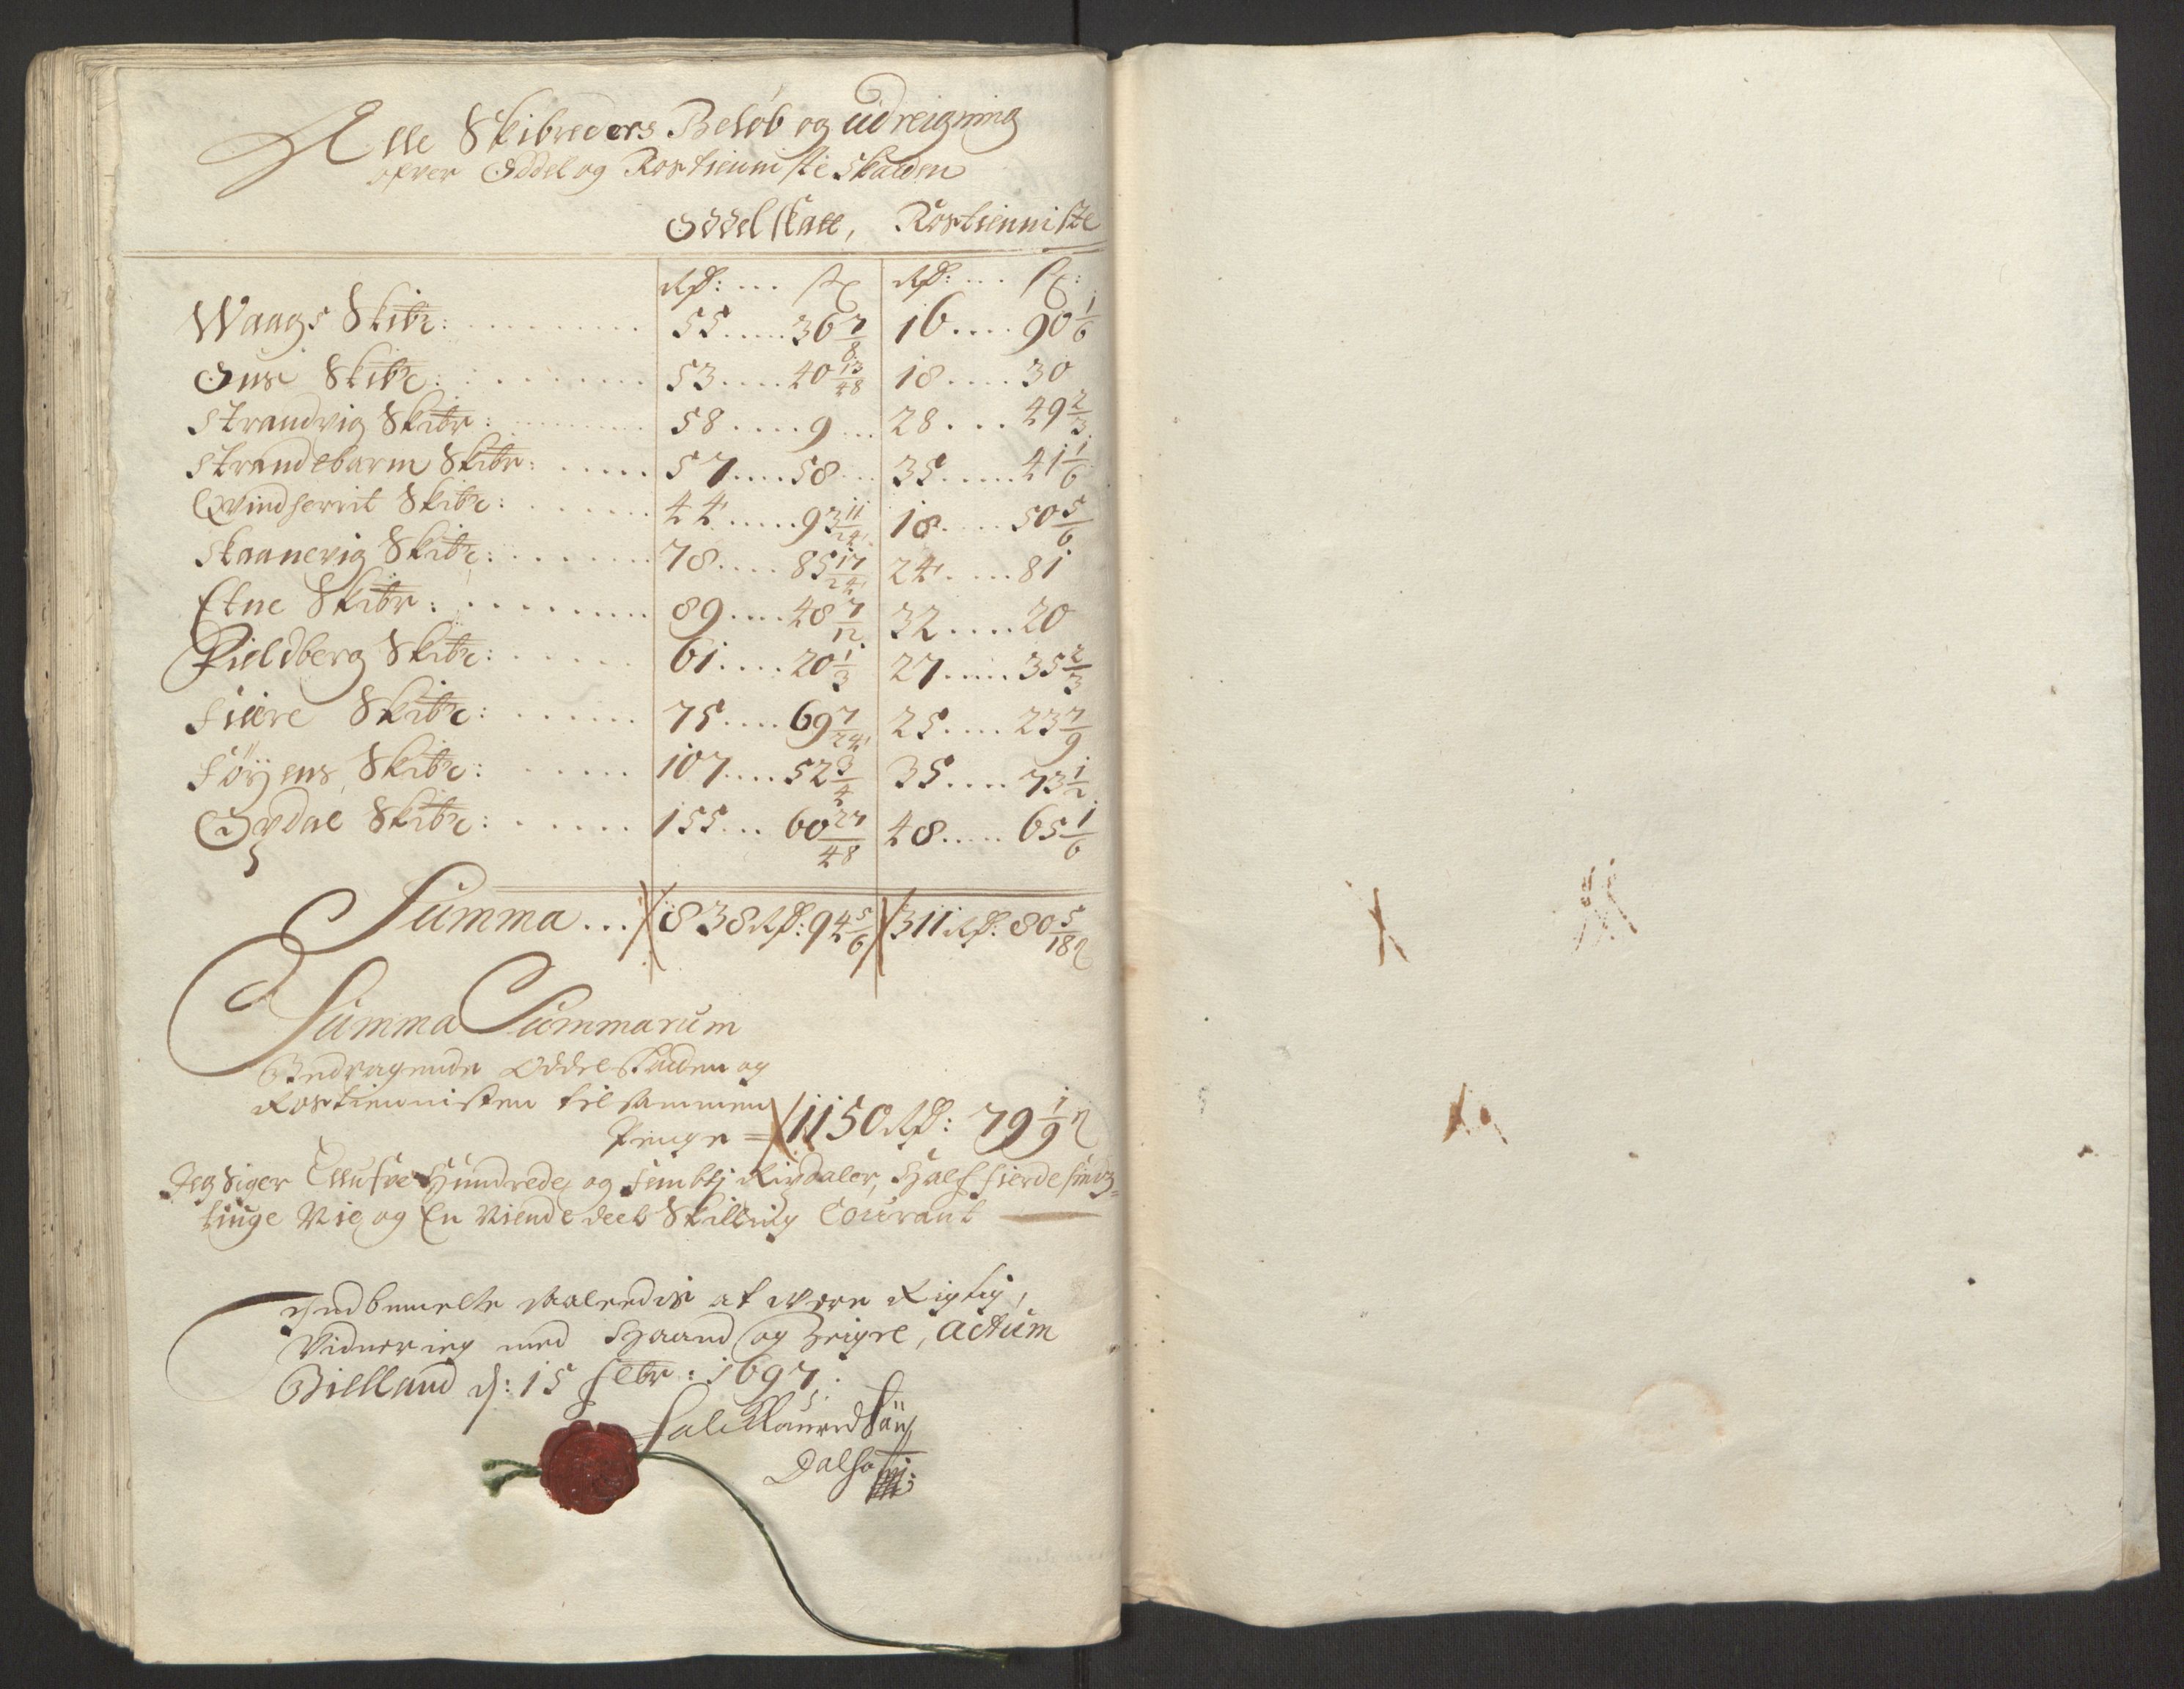 Alle Skibreders Beløb og Udreigning
ofver Oddel og Rostienniste Skatten
Oddel skatt, Rostienniste
Rdr: ... ß Rdr: ... ß:
Waags Skibr: 55 .... 36 7/8 16 .... 90 1/6
Ous Skibr: 53 .... 40 13/48 18 .... 30
Strandvig Skibr: 58 .... 9 ... 28 ... 49 2/3
Strandebarm Skibr: 57 .... 58 ... 35 .... 41 1/6
Qvindherrit Skibr: 44 .... 93 11/24 18 .... 50 5/6
Skaanevig Skibr: 78 .... 85 17/24 24 .... 81
Etne Skibr: 89 .... 48 7/12 32 .... 20
Fieldberg Skibr: 61 .... 20 1/3 27 .... 35 2/3
Fiere Skibr: 75 .... 69 7/24 25 .... 23 7/9
Føyens Skibr: 107 .... 52 3/4 35 .... 73 1/2
Opdal Skibr: 155 ... 60 27/48 48 .... 65 1/6
Summa ... 838 Rdr: 94 5/6 311 Rdr: 80 5/18 ß
Summa Summarum
Bedragende Oddel Skatten og
Rostiennisten tilsammen
Penge = 1150 Rdr: 79 1/9 ß
Jeg Siger Ellufve Hundrede og fembtj Rixdaler, Halffierdesinds=
tiuge Nie og En Niende deel Skilling Courant
Indbemelte saaledis at were Rigtig,
Vidner ieg med Haand og Zeigne, Actum
Bielland d: 15 febr: 1697
Dalho